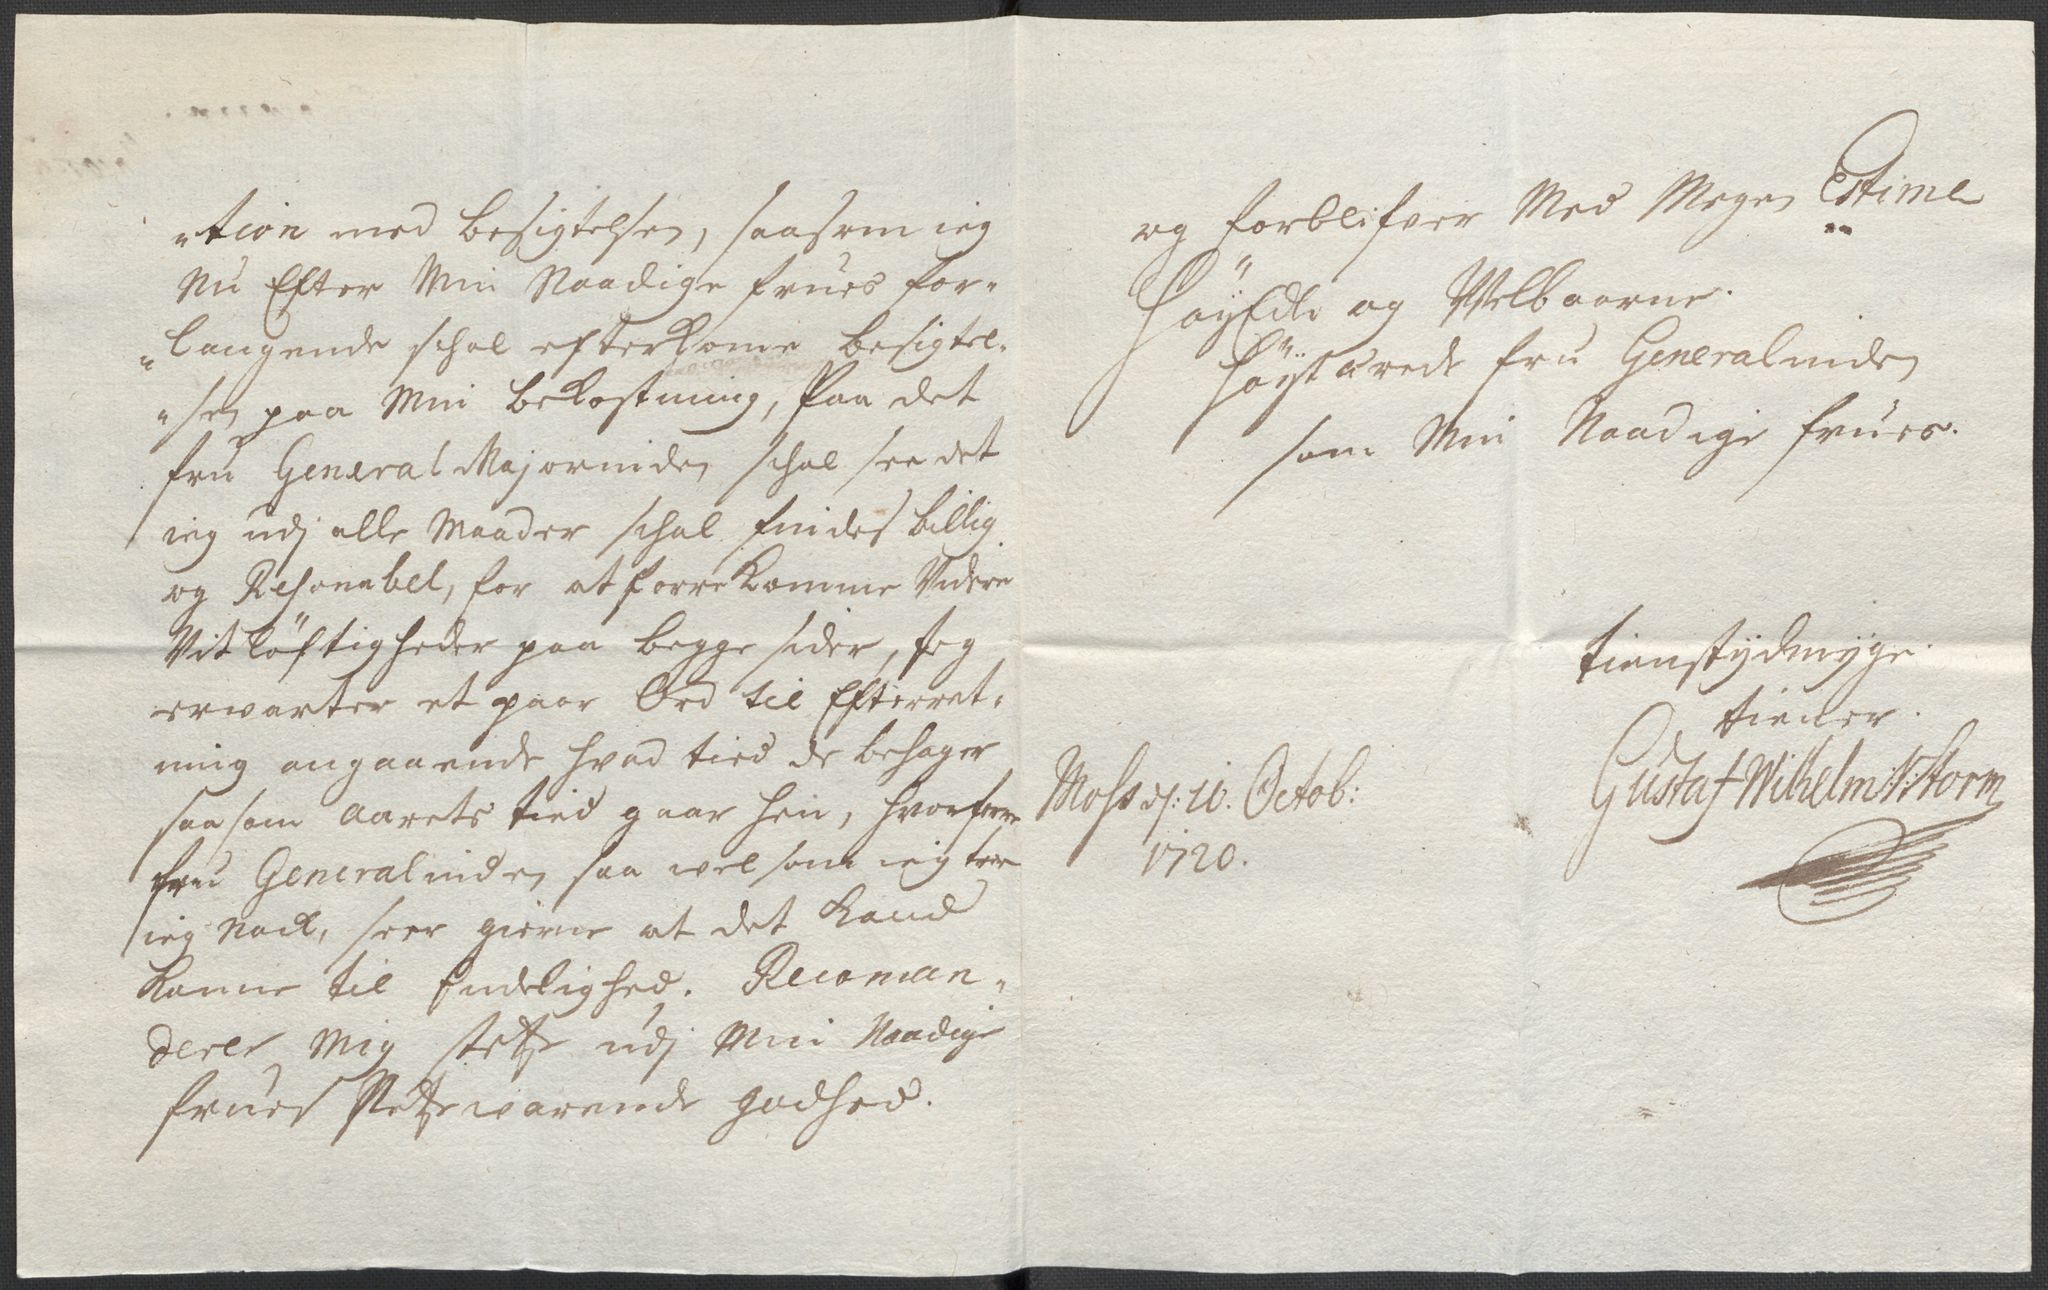 "tion med besigtelsen, saasom ieg
nu Efter Min Naadige Frues for„
„langende schal efterkome besigtel„
„sen paa Min bekostning, Paa det
fru General Majorinden schal see det
ieg udj alle Maader schal findes billig
og Resonabel, for at forrekomme Videre
Vitløftigheder paa begge sider, Jeg
erwarter et paar Ord til Efterret„
ning angaaende hvad tied de behager
saasom Aarets tied gaar hen, hvorforre
fru Generalinden saa wel som ieg troer
ieg nock, seer gierne at det kand
komme til Endelighed. Recoman„
derer Mig stetze udj Min Naadige
Frues Stetzewarende godhed.
og forblifver Med Megen Estime
HøyEdle og Welbaarne.
Høystærede fru Generalinden
som Min Naadige Frues.
tienstydmyge.
tiener.
Gustaf Wilhelm V: Storm
Moss d: 10. Octob:
1720.